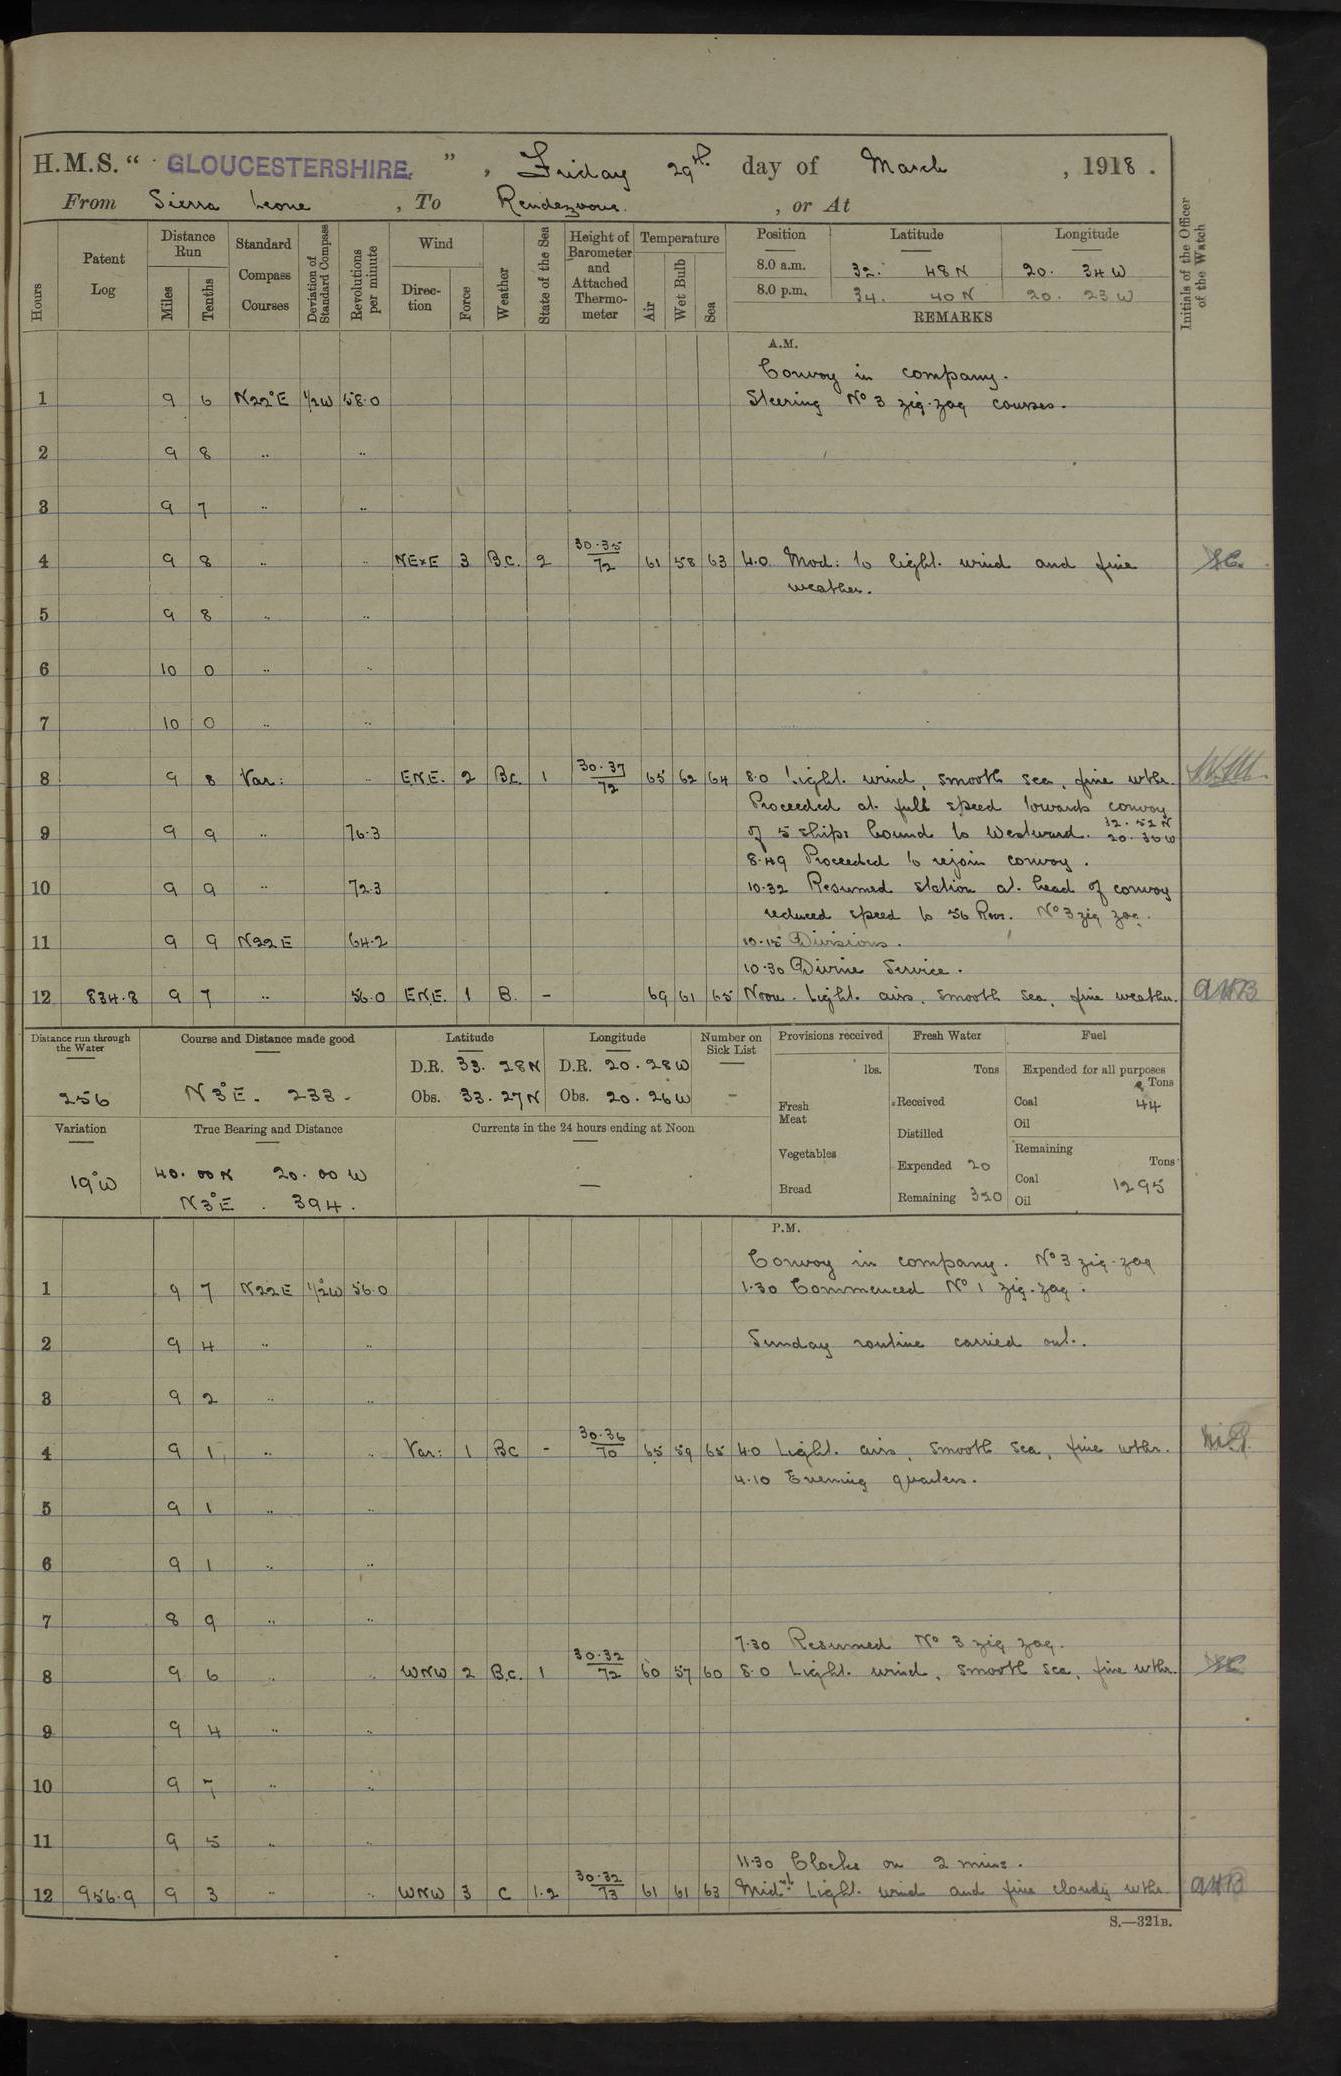 H.M.S. " GLOUCESTERSHIRE. ", Friday 29th day of March, 1918.
From Sierra Leone, To Rendezvous., or At
Hours Patent Log Distance Run Miles Tenths Standard Compass Courses Deviation of Standard Compass Revolutions per minute Wind Direction Force Weather State of the Sea Height of Barometer and Attached Thermometer Temperature Air Wet Bulb Sea Position Latitude Longitude Initials of the Officer of the Watch
8.0 a.m. 32. 48 N 20. 34 W
8.0 p.m. 34. 40 N 20. 23 W
REMARKS
A.M.
Convoy in company.
1 9 6 N22°E ½W 58.0 Steering No 3 zig-zag courses.
2 9 8 " "
3 9 7 " "
4 9 8 " " NExE 3 B.C. 2 30.35/72 61 58 63 4.0 Mod: to light wind and fine
weather.
5 9 8 " "
6 10 0 " "
7 10 0 " "
8 9 8 Var: " E.N.E. 2 Bc. 1 30.37/72 65 62 64 8.0 Light wind, smooth sea, fine wthr.
Proceeded at full speed towards convoy
9 9 9 " 76.3 of 5 ships bound to Westward. 32.52 N 20.30 W
8.49 Proceeded to rejoin convoy.
10 9 9 " 72.3 10.32 Resumed station at head of convoy
reduced speed to 56 Revs. No 3 zig zag.
11 9 9 N22E 64.2 10.15 Divisions.
10.30 Divine Service.
12 834.8 9 7 " 56.0 E.N.E. 1 B. - 69 61 65 Noon. Light airs, smooth sea, fine weather.
Distance run through the Water Course and Distance made good Latitude Longitude Number on Sick List Provisions received Fresh Water Fuel
256 N3°E. 233.
D.R. 33. 28N D.R. 20. 28W
Obs. 33. 27N Obs. 20. 26W -
lbs. Tons Expended for all purposes Tons
Fresh Meat Received Coal 44
Oil
Variation True Bearing and Distance Currents in the 24 hours ending at Noon
19°W 40.00N 20.00W
N3°E. 394. —
Vegetables Distilled Remaining Tons
Expended 20 Coal 1295
Bread Remaining 320 Oil
P.M.
Convoy in company. No 3 zig-zag
1 9 7 N22E ½°W 56.0 1.30 Commenced No 1 zig-zag.
2 9 4 " " Sunday routine carried out.
3 9 2 " "
4 9 1 " " Var: 1 Bc - 30.36/70 65 59 65 4.0 Light airs, smooth sea, fine wthr.
4.10 Evening quarters.
5 9 1 " "
6 9 1 " "
7 8 9 " "
7.30 Resumed No 3 zig zag.
8 9 6 " " WNW 2 B.c. 1 30.32/72 60 57 60 8.0 Light wind, smooth sea, fine wthr.
9 9 4 " "
10 9 7 " "
11 9 5 " "
11.30 Clocks on 2 mins.
12 956.9 9 3 " " WNW 3 C 1.2 30.32/73 61 61 63 Midnt Light wind and fine cloudy wthr.
S.—321B.